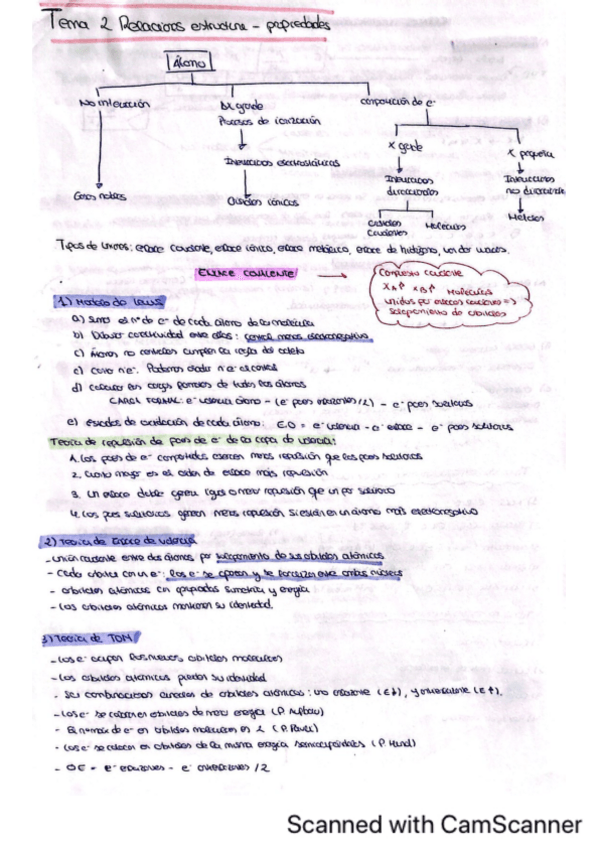 Tema 2 Relaciones estructura - propiedades
Átomo
No interacción
Δχ grande
compartición de e⁻
Procesos de ionización
χ grande
χ pequeña
Interacciones electrostáticas
Interacciones direccionales
Interacciones no direccionales
Gases nobles
Cristales iónicos
Cristales Covalentes
Moléculas
Metales
Tipos de uniones: enlace covalente, enlace iónico, enlace metálico, enlace de hidrógeno, van der waals.
ENLACE COVALENTE →
Compuesto covalente
XA↑ XB↑ Moléculas
unidas por enlaces covalentes =>
solapamiento de orbitales
1) Modelo de Lewis
a) Suma el nº de e⁻ de cada átomo de la molécula
b) Dibujar conectividad entre ellos: central menos electronegativo.
c) Átomos no centrales cumplen la regla del octeto
c) Coloco n e⁻. Podemos añadir n e⁻ al central
d) Calcular las cargas formales de todos los átomos
CARGA FORMAL: e⁻ valencia átomo - (e⁻ pares enlazantes/2) - e⁻ pares solitarios
e) Estados de oxidación de cada átomo: E.O = e⁻ valencia - e⁻ enlace - e⁻ pares solitarios
Teoría de repulsión de pares de e⁻ de la capa de valencia:
1. Los pares de e⁻ compartidos ejercen menos repulsión que los pares solitarios
2. Cuanto mayor es el orden de enlace más repulsión
3. Un enlace doble genera igual o mayor repulsión que un par solitario
4. Los pares solitarios generan menos repulsión si están en un átomo más electronegativo
2) Teoría de Enlace de valencia
- Unión covalente entre dos átomos por solapamiento de sus orbitales atómicos
- Cada orbital con un e⁻: los e⁻ se aparean y se localizan entre ambos núcleos
- orbitales atómicos con apropiada simetría y energía
- Los orbitales atómicos mantienen su identidad.
3) Teoría de TOM
- Los e⁻ ocupan los nuevos orbitales moleculares
- Los orbitales atómicos pierden su identidad
- Son combinaciones lineales de orbitales atómicos: uno enlazante (E↓), y antienlazante (E↑).
- Los e⁻ se colocan en orbitales de menor energía (P. Aufbau)
- El nº máx de e⁻ en orbitales moleculares es 2 (P. Pauli)
- Los e⁻ se colocan en orbitales de la misma energía semiocupándolos (P. Hund)
- OE = e⁻ enlazantes - e⁻ antienlazantes /2
Scanned with CamScanner